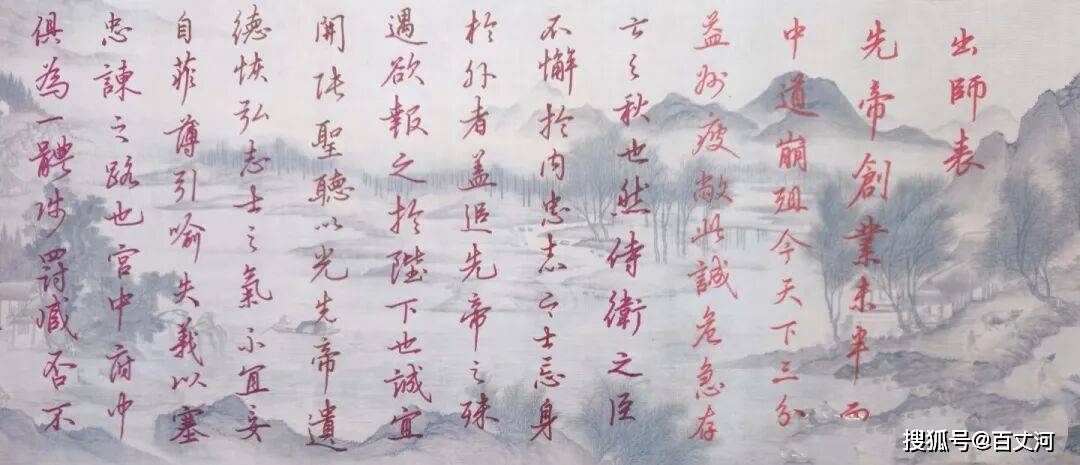 出師表
先帝創業未半而
中道崩殂今天下三分
益州疲敝此誠危急存
亡之秋也然侍衛之臣
不懈於內忠志之士忘身
於外者蓋追先帝之殊
遇欲報之於陛下也誠宜
開張聖聽以光先帝遺
德恢弘志士之氣不宜妄
自菲薄引喻失義以塞
忠諫之路也宮中府中
俱為一體陟罰臧否不
搜狐号@百丈河